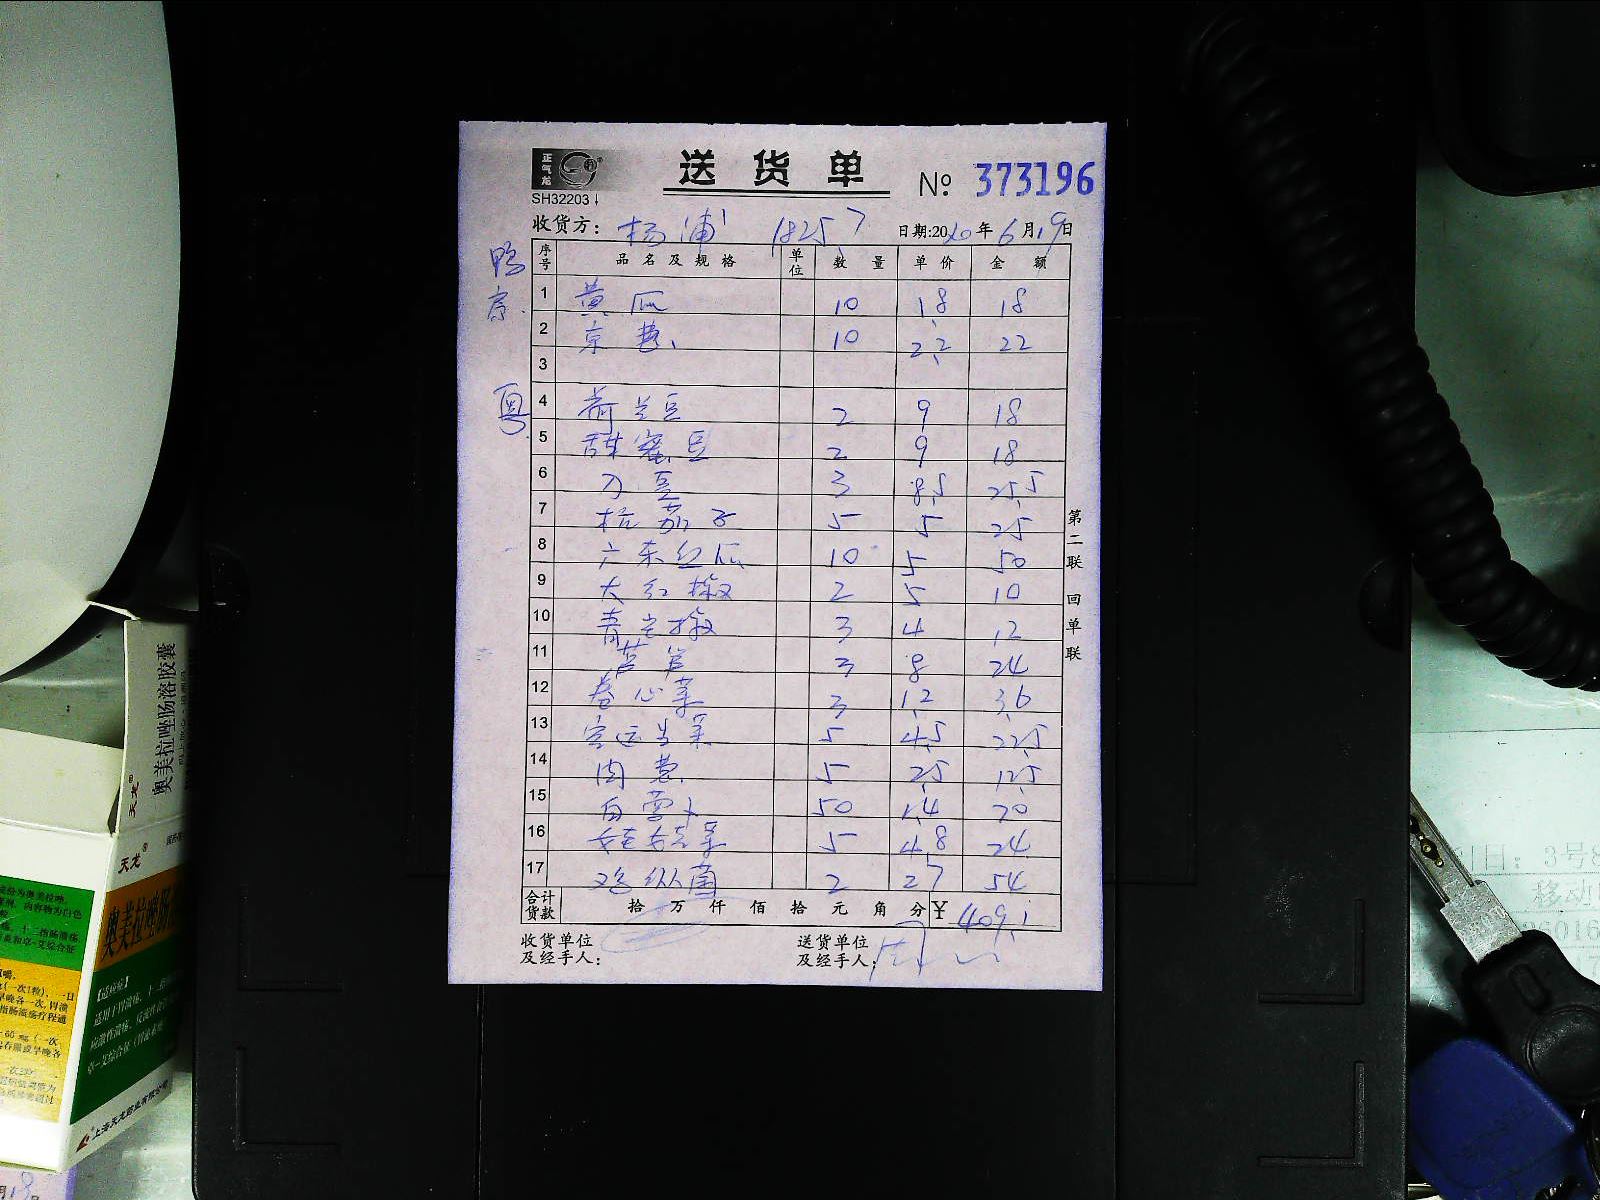 正气龙
送货单 № 373196
SH32203
收货方: 杨浦 18257 日期:2020年6月19日
鸭房
序号 品名及规格 单位 数量 单价 金额
1 黄瓜 10 1.8 18
2 京葱 10 2.2 22
3
粤
4 荷兰豆 2 9 18
5 甜蜜豆 2 9 18
6 刀豆 3 8.5 25.5
7 杭茄子 5 5 25
8 广东丝瓜 10 5 50
9 大红椒 2 5 10
10 青尖椒 3 4 12
11 芦笋 3 8 24
12 卷心菜 3 1.2 3.6
13 菜 5 4.5 22.5
14 肉葱 5 2.5 12.5
15 白萝卜 50 1.4 70
16 娃娃菜 5 4.8 24
17 鸡枞菌 2 27 54
合计货款 拾万仟佰拾元角分 ¥ 409.1
收货单位及经手人:
送货单位及经手人:
第二联 回单联
奥美拉唑肠溶胶囊
天龙®
天龙®
奥美拉唑肠
【适应症】
上海天龙药业有限公司
3号
移动